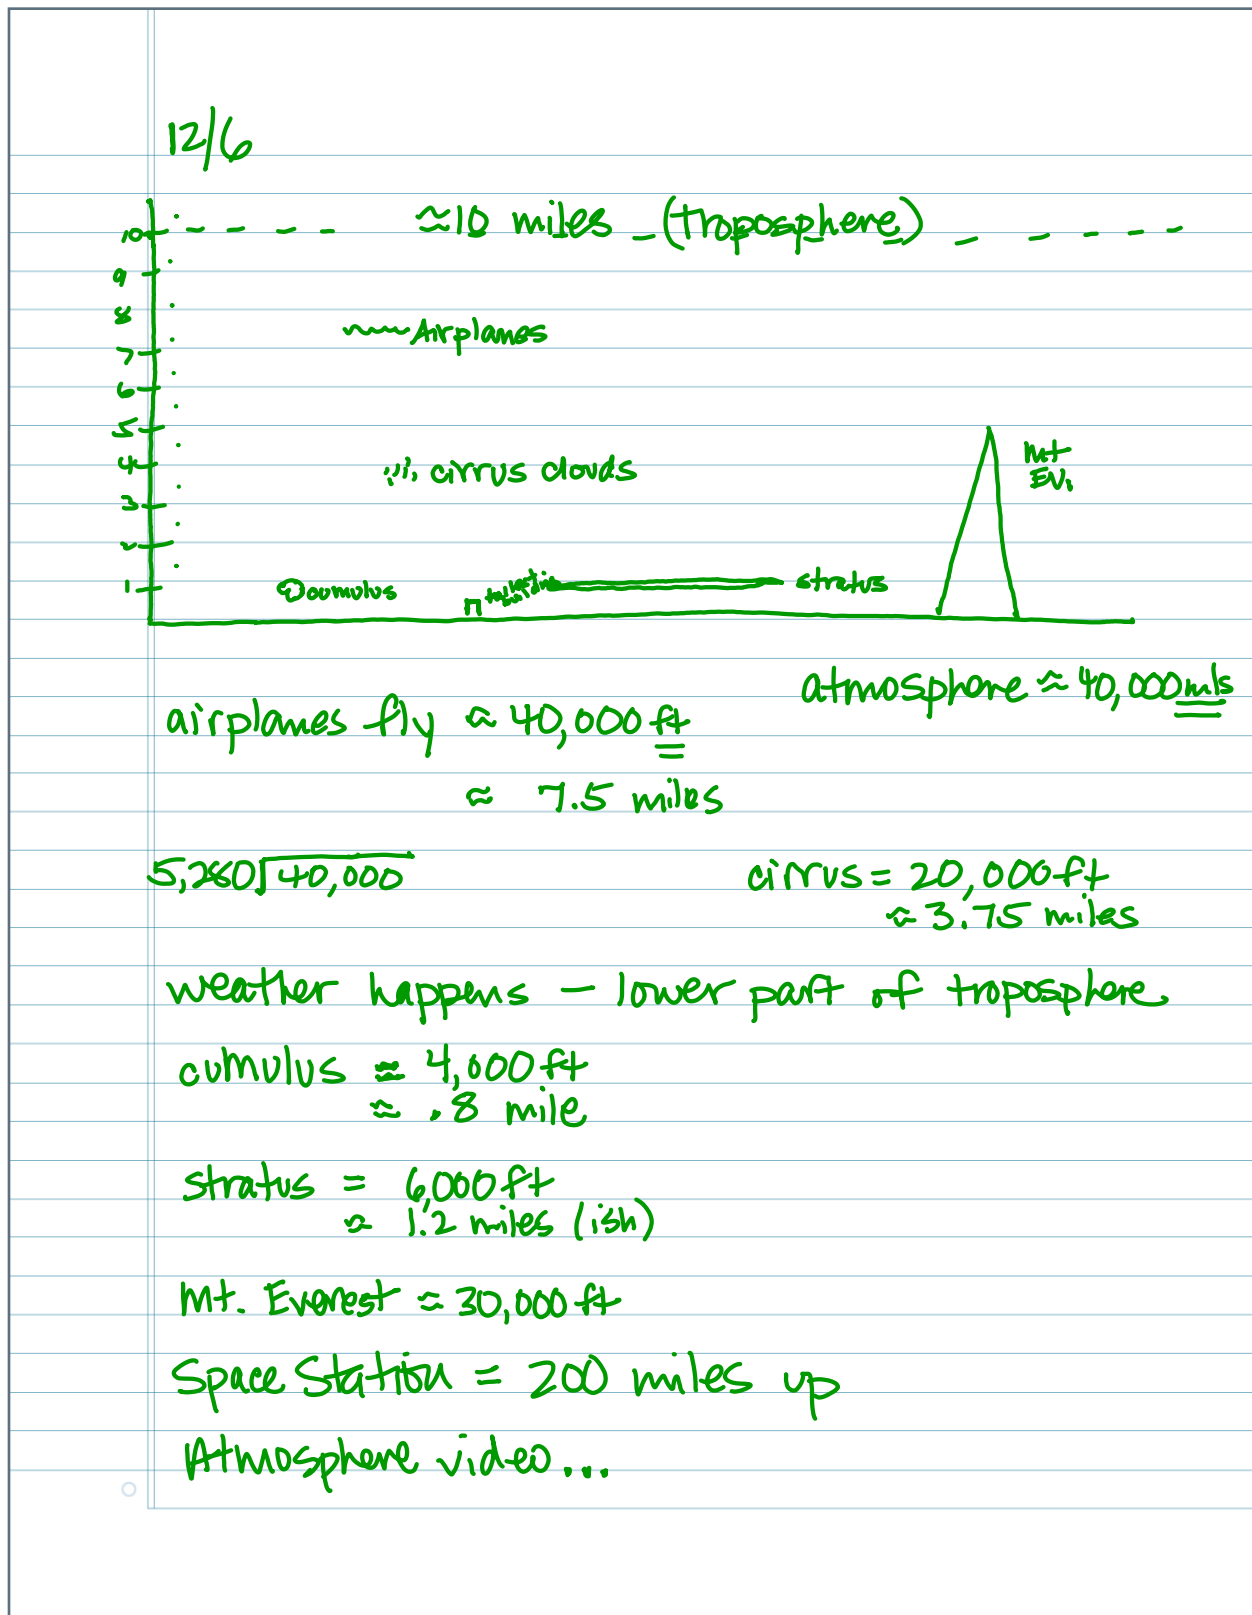 12/6
≈10 miles (troposphere)
10
9
8
7
6
5
4
3
2
1
Airplanes
cirrus clouds
Mt
EV.
cumulus
stratus
atmosphere ≈ 40,000 mls
airplanes fly ≈ 40,000 ft
≈ 7.5 miles
5,280 40,000
cirrus = 20,000 ft
≈ 3.75 miles
weather happens - lower part of troposphere
cumulus ≈ 4,000 ft
≈ .8 mile
stratus = 6,000 ft
≈ 1.2 miles (ish)
Mt. Everest ≈ 30,000 ft
Space Station = 200 miles up
Atmosphere video...